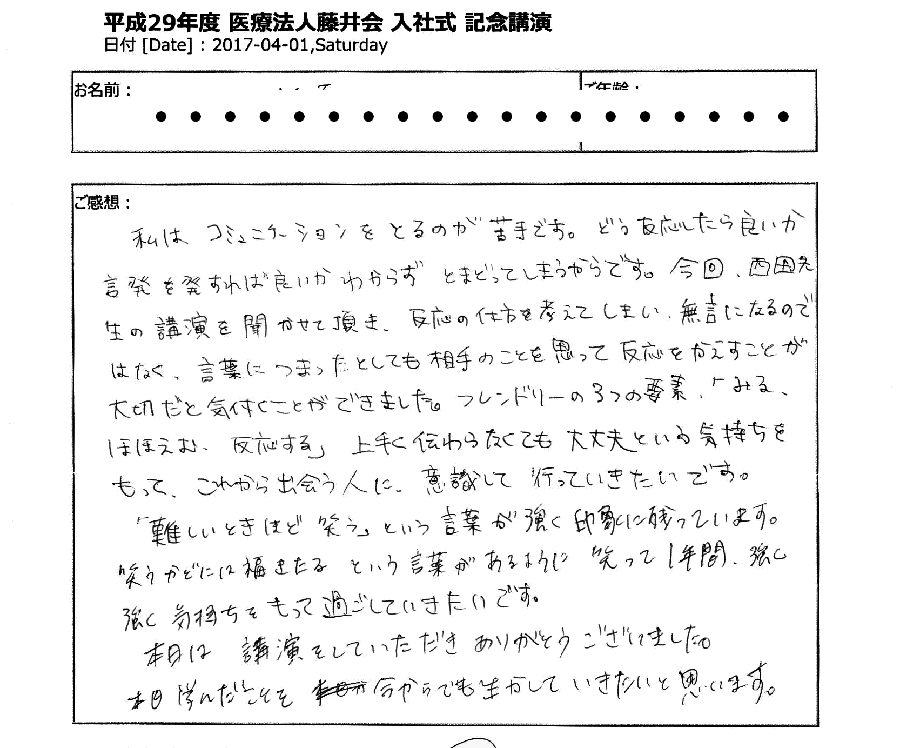 平成29年度 医療法人藤井会 入社式 記念講演
日付 [Date] : 2017-04-01,Saturday
お名前: ご年齢:
ご感想:
私は コミュニケーションをとるのが苦手です。どう反応したら良いか
言発を発すれば良いかわからず とまどってしまうからです。今回、西国先
生の講演を聞かせて頂き、反応の仕方を考えてしまい、無言になるので
はなく、言葉につまったとしても相手のことを思って反応をかえすことが
大切だと気付くことができました。フレンドリーの3つの要素、「みる、
ほほえむ、反応する」上手く伝わらなくても大丈夫という気持ちを
もって、これから出会う人に、意識して行っていきたいです。
「難しいときほど笑う」という言葉が強く印象に残っています。
笑うかどには福きたる という言葉があるように 笑って1年間、強く
強く気持ちをもって過ごしていきたいです。
本日は 講演をしていただきありがとうございました。
本日学んだことを 今からでも生かしていきたいと思います。